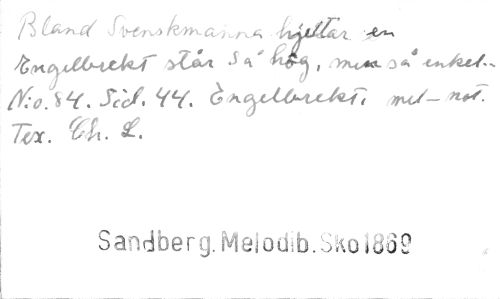 Bland Svenskmanna hjeltar en
Engelbrekt står så hög, men så enkel..
N:o. 84. Sid. 44. Engelbrekt. mel-not.
Tex. Ch. L.
Sandberg. Melodib. Sko 1869